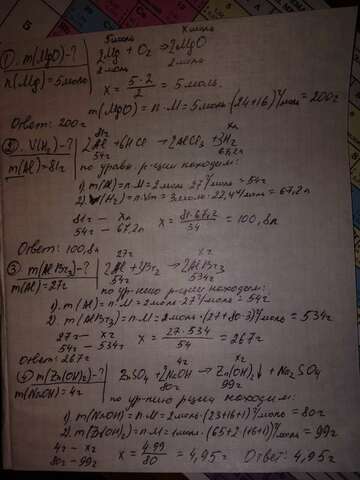 5 моль        x моль
① m(MgO)-? | 2Mg + O₂ → 2MgO
n(Mg)=5моль | 2моль        2моль
x = 5·2/2 = 5 моль.
m(MgO) = n·M = 5моль·(24+16)г/моль = 200г
Ответ: 200г
81г        xл
② V(H₂)-? | 2Al + 6HCl → 2AlCl₃ + 3H₂
m(Al)=81г | 54г        67,2л
по уравн. р-ции находим:
1) m(Al)=n·M=2моль·27г/моль=54г
2) V(H₂)=n·Vm=3моль·22,4л/моль=67,2л
81г – xл
54г – 67,2л   x = 81·67,2/54 = 100,8л
Ответ: 100,8л
27г        xг
③ m(AlBr₃)-? | 2Al + 3Br₂ → 2AlBr₃
m(Al)=27г | 54г        534г
по ур-нию р-ции находим:
1). m(Al)=n·M=2моль·27г/моль=54г
2). m(AlBr₃)=n·M=2моль·(27+80·3)г/моль=534г
27г – xг
54г – 534г   x = 27·534/54 = 267г
Ответ: 267г
4г        xг
④ m(Zn(OH)₂)-? | ZnSO₄ + 2NaOH → Zn(OH)₂↓ + Na₂SO₄
m(NaOH)=4г | 80г        99г
по ур-нию р-ции находим:
1) m(NaOH)=n·M=2моль·(23+16+1)г/моль=80г
2) m(Zn(OH)₂)=n·M=1моль·(65+2·(16+1))г/моль=99г
4г – xг
80г – 99г   x = 4·99/80 = 4,95г   Ответ: 4,95г